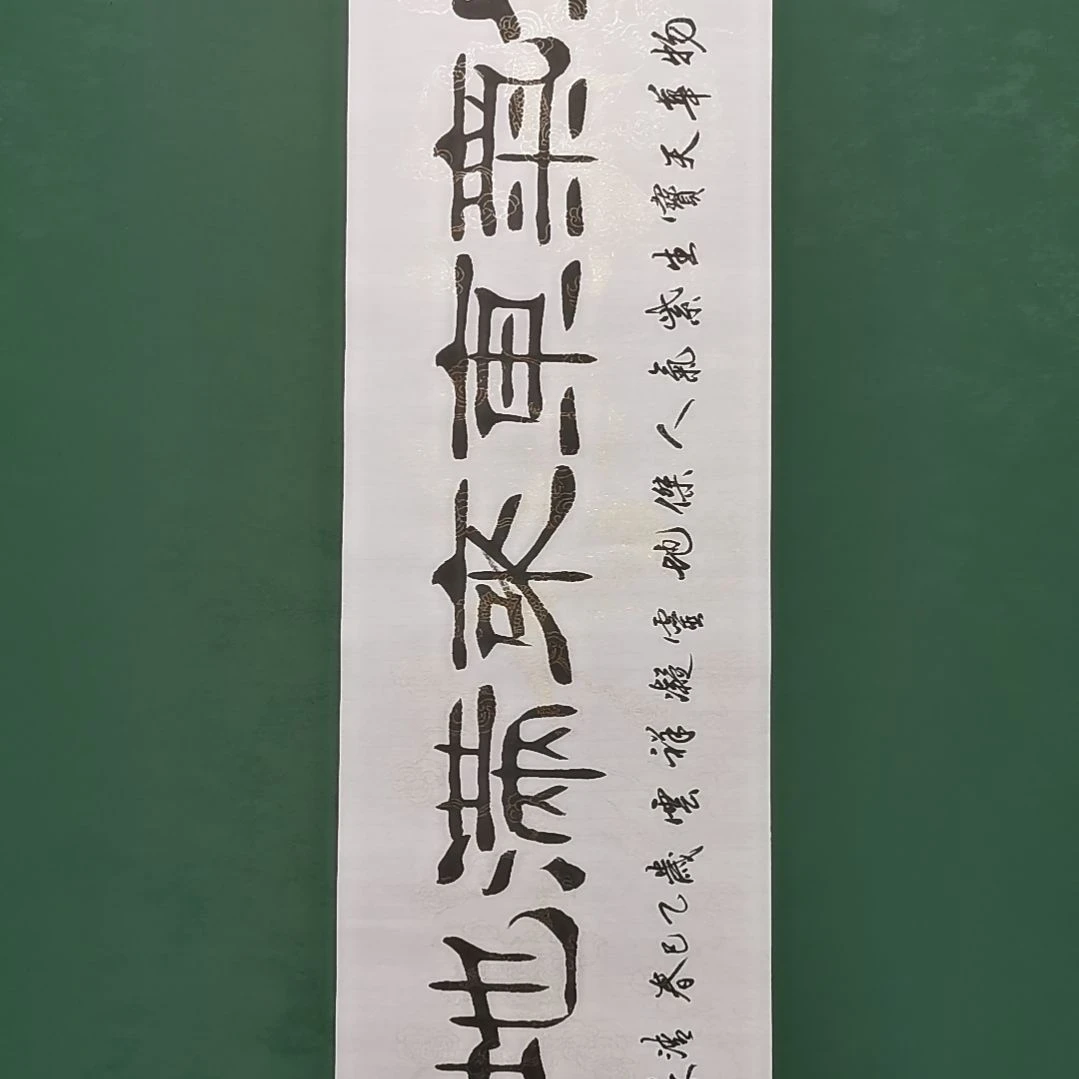 氣東來滿地
物華天寶生紫氣人傑地靈凝祥雲歲乙巳春